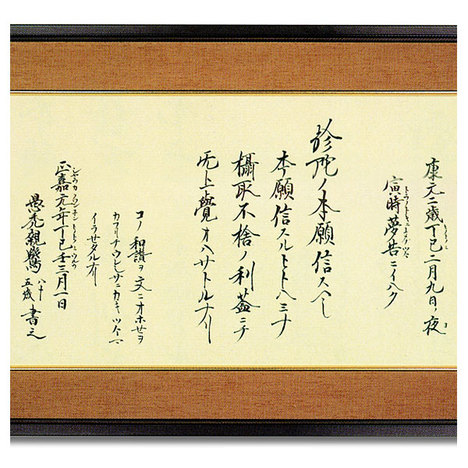 康元二歳丁巳二月九日ノ夜
寅時夢告ニイハク
弥陀ノ本願信スヘシ
本願信スルヒトハミナ
攝取不捨ノ利益ニテ
无上覺オハサトルナリ
コノ和讃ヲユメニオホセヲ
カフリテウレシサニカキツケマ
イラセタルナリ
正嘉元年丁巳壬三月一日
愚禿親鸞 八十五歳 書之